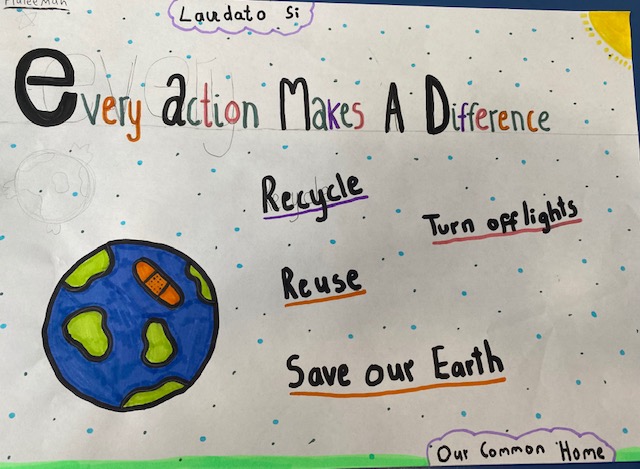 Laudato Si
every action Makes A Difference
Recycle
Turn off lights
Reuse
Save our Earth
Our Common Home